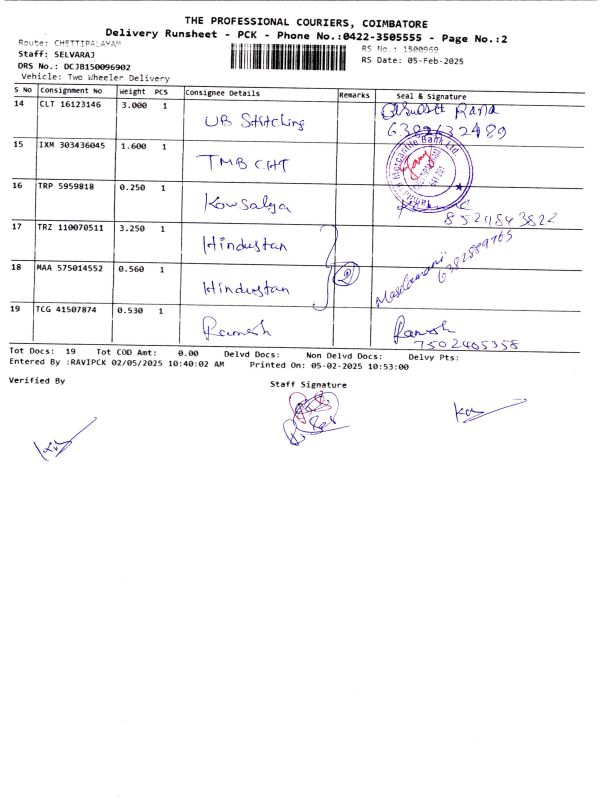 THE PROFESSIONAL COURIERS, COIMBATORE
Delivery Runsheet - PCK - Phone No.:0422-3505555 - Page No.:2
Route: CHETTIPALAYAM
RS No.: 1500969
Staff: SELVARAJ
RS Date: 05-Feb-2025
DRS No.: DCJB150096902
Vehicle: Two Wheeler Delivery
S No Consignment No Weight PCS Consignee Details Remarks Seal & Signature
14 CLT 16123146 3.000 1 UB Stitching
15 IXM 303436045 1.600 1 TMB CHT
16 TRP 5959818 0.250 1 Kowsalya
17 TRZ 110070511 3.250 1 Hindustan
18 MAA 575014552 0.560 1 Hindustan 2
19 TCG 41507874 0.530 1 Ramesh Ramesh
7502405358
Tot Docs: 19 Tot COD Amt: 0.00 Delvd Docs: Non Delvd Docs: Delvy Pts:
Entered By :RAVIPCK 02/05/2025 10:40:02 AM Printed On: 05-02-2025 10:53:00
Verified By Staff Signature